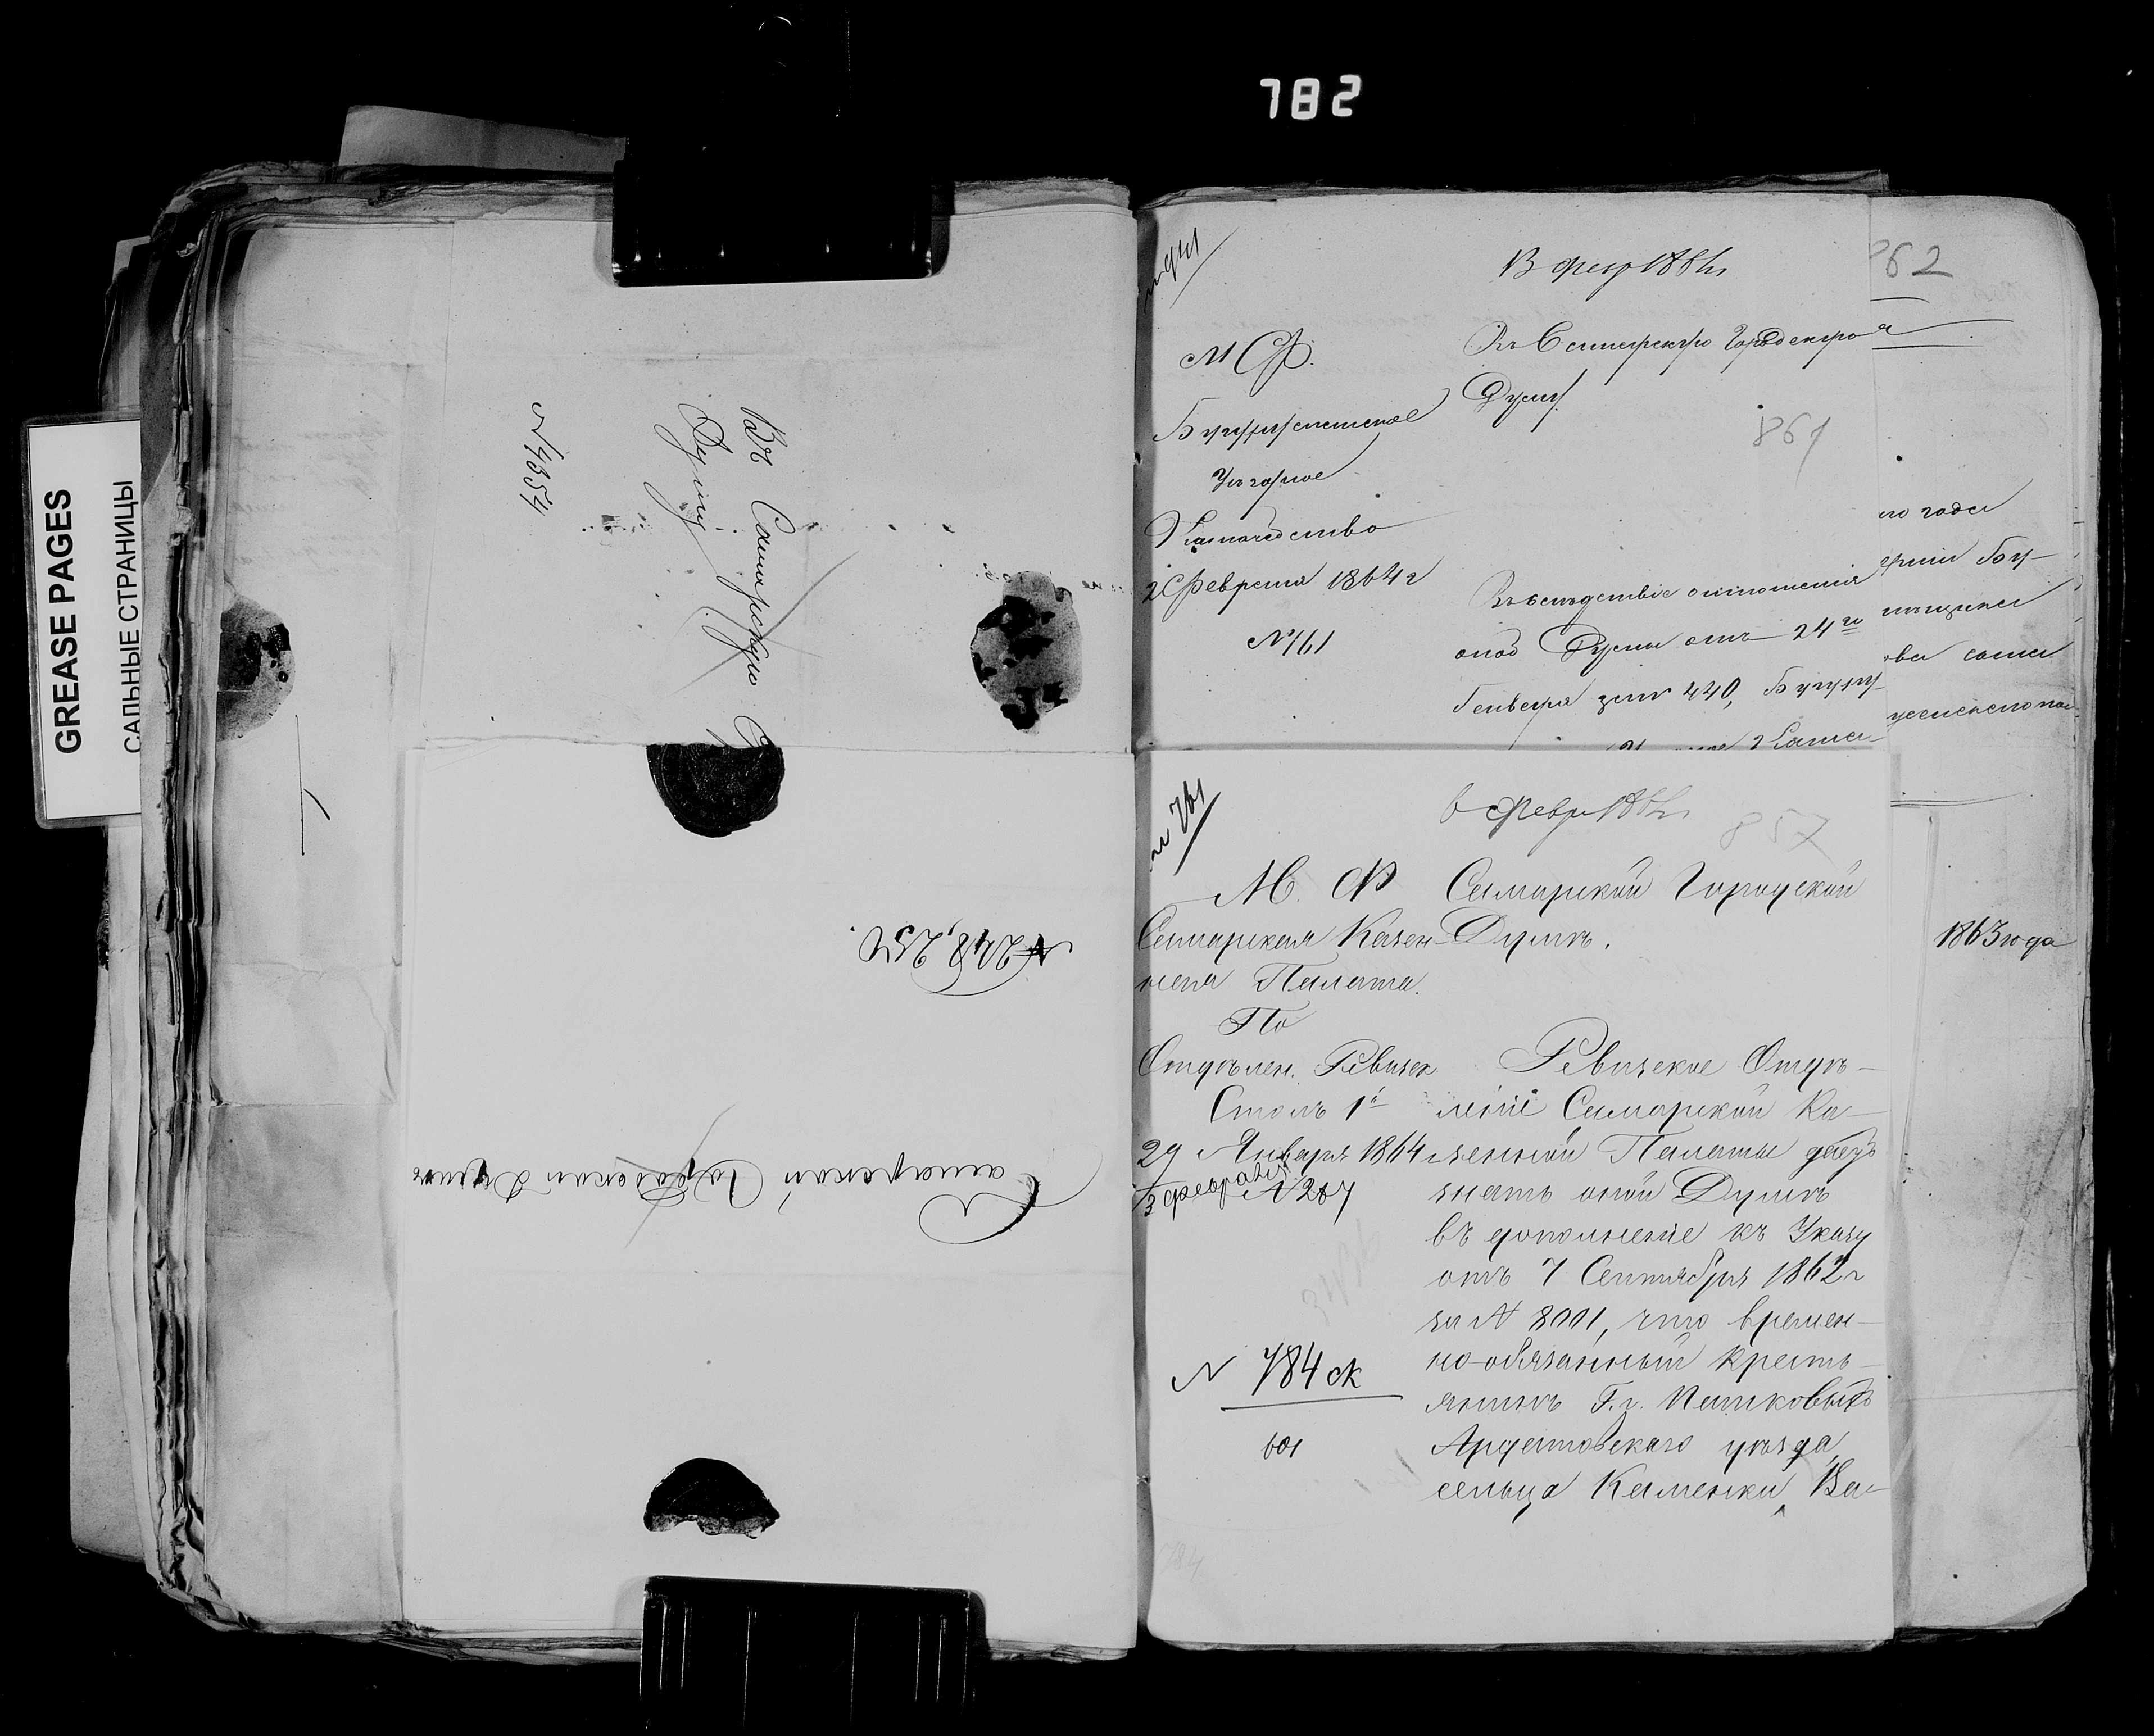 782
GREASE PAGES
САЛЬНЫЕ СТРАНИЦЫ
Въ Самарскую
Думу
№ 4354
№ 248, 250.
Самарской Городской Думѣ
862
М Ф.
Бугурусланское
Уѣздное
Казначейство
2 Февраля 1864 г
№ 161
Въ Самарскую Городскую
Думу
861
Въ слѣдствіе отношенія
оной Думы отъ 24го
Генваря за № 440, Бугуру-
го года
ова сына
№ 761
6 Февр 1864
857
М. Ф
Самарская Казен-
ная Палата.
По
Отдѣлен. Ревизск
Столъ 1й
29 Января 1864
3 февраля
№ 267
№ 784 ск
601
Самарской Городской
Думѣ.
Ревизское Отдѣ-
леніе Самарской Ка-
зенной Палаты даетъ
знать оной Думѣ
въ дополненіе къ Указу
отъ 7 Сентября 1862 г
за № 8001, что времен-
но-обязанный кресть-
янинъ Г.г. Пашковыхъ
Ардатовскаго уѣзда,
сельца Каменки Ва-
1863 года
784